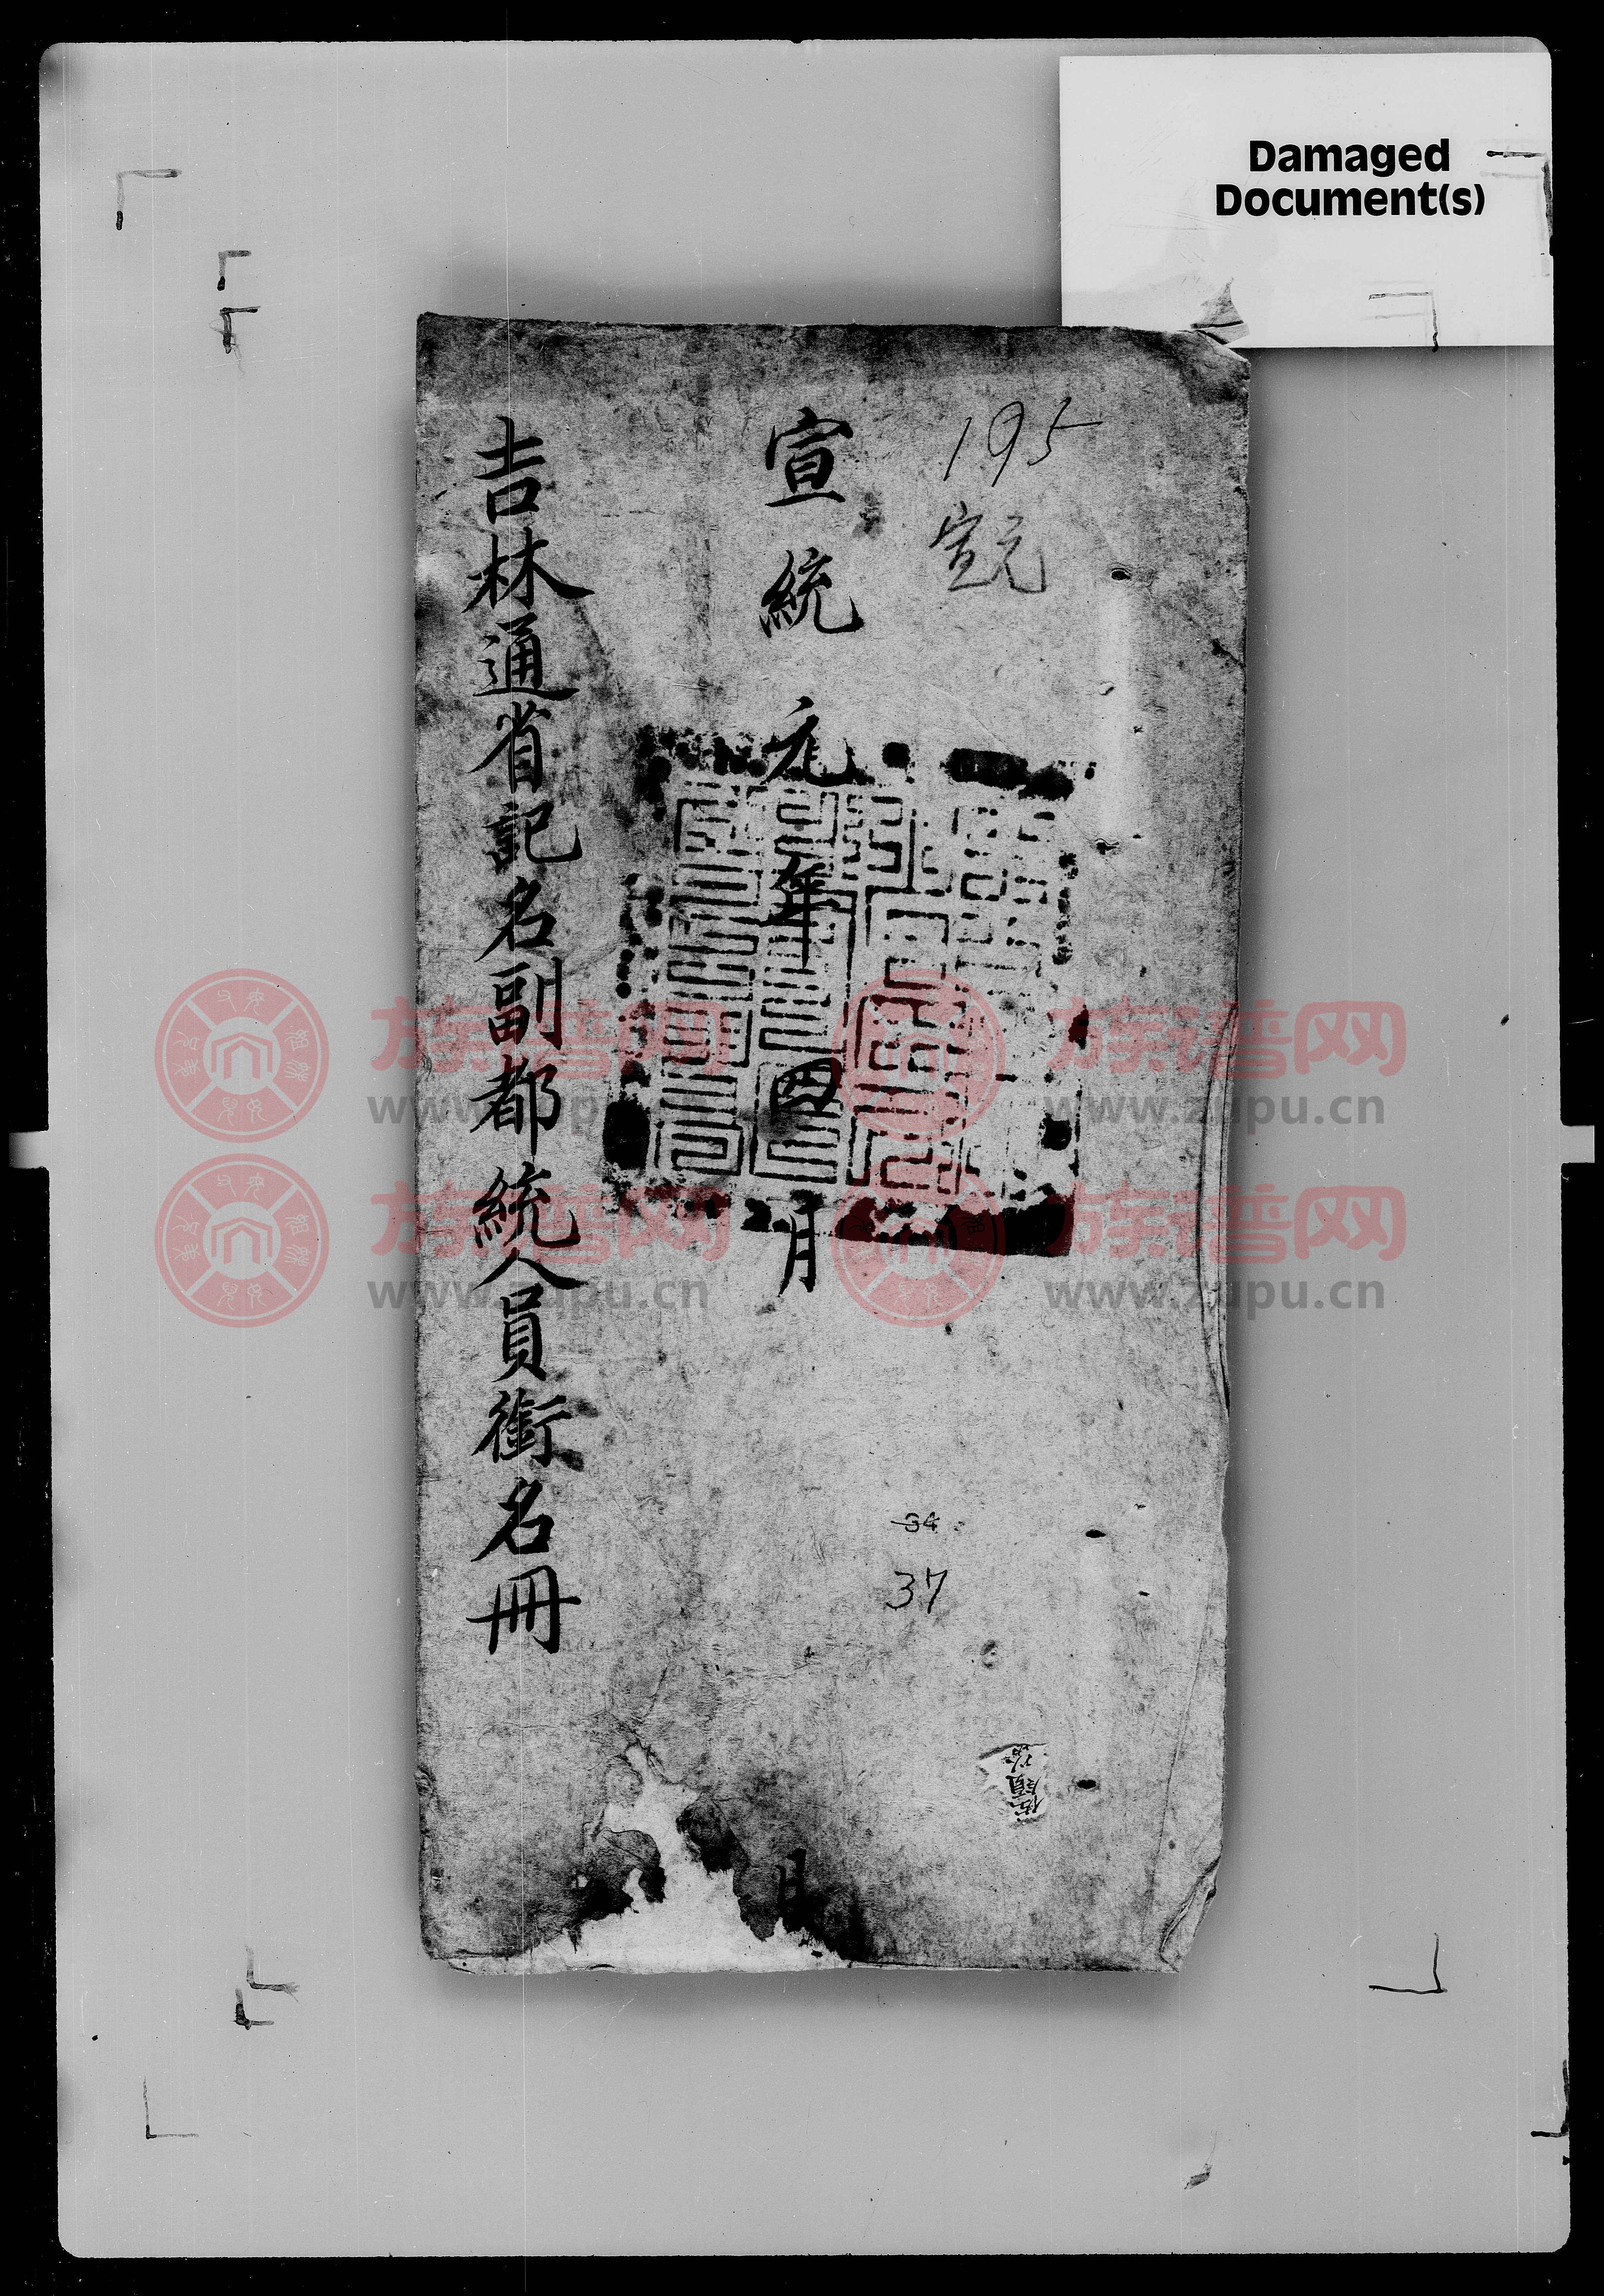 Damaged
Document(s)
195
宣元
宣統元年四月
吉林通省記名副都統人員銜名冊
34
37
月
族谱网
www.zupu.cn
族谱网
www.zupu.cn
族谱网
www.zupu.cn
族谱网
www.zupu.cn